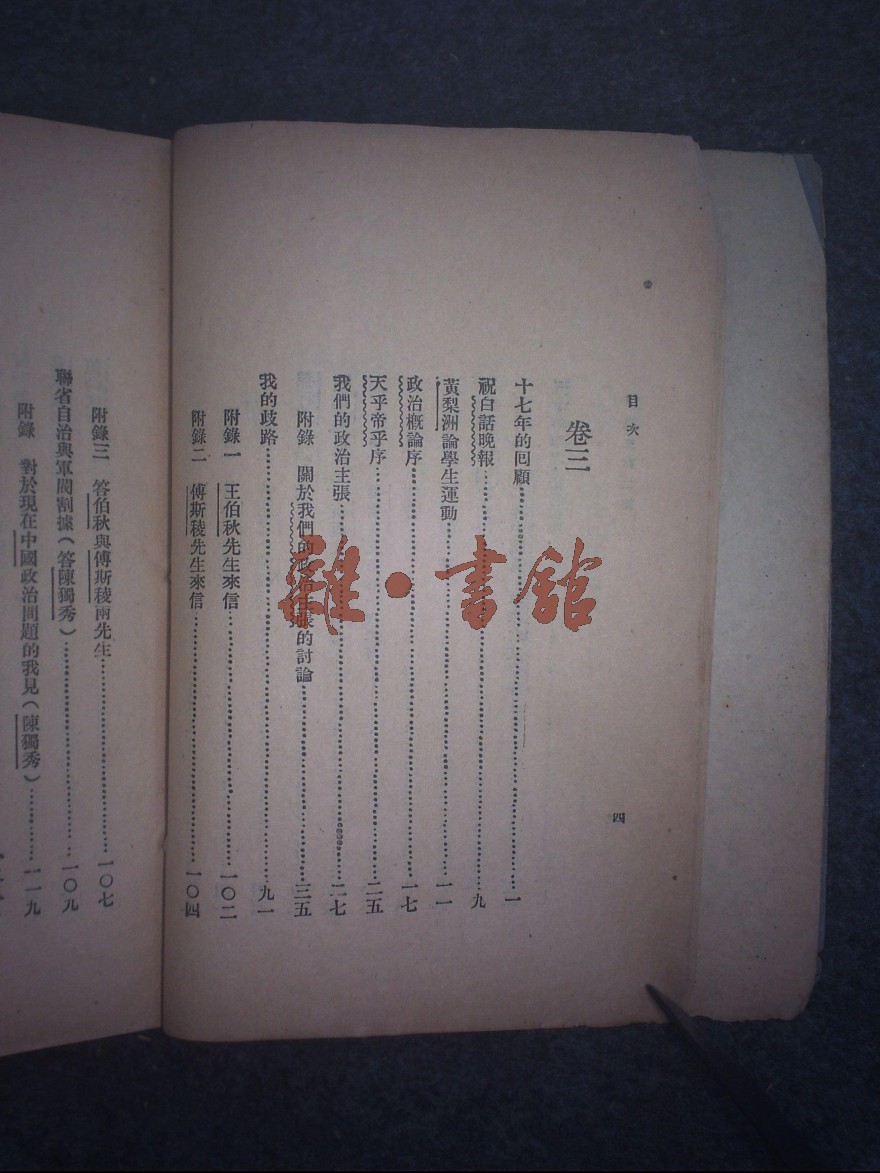 目次
四
卷三
十七年的回顧……一
祝白話晚報……九
黃梨洲論學生運動……一一
政治概論序……一七
天乎帝乎序……二五
我們的政治主張……二七
附錄 關於我們的政治主張的討論……三五
我的歧路……九一
附錄一 王伯秋先生來信……一〇二
附錄二 傅斯稜先生來信……一〇四
附錄三 答伯秋與傅斯稜兩先生……一〇七
聯省自治與軍閥割據(答陳獨秀)……一〇九
附錄 對於現在中國政治問題的我見(陳獨秀)……一一九
雜·書館